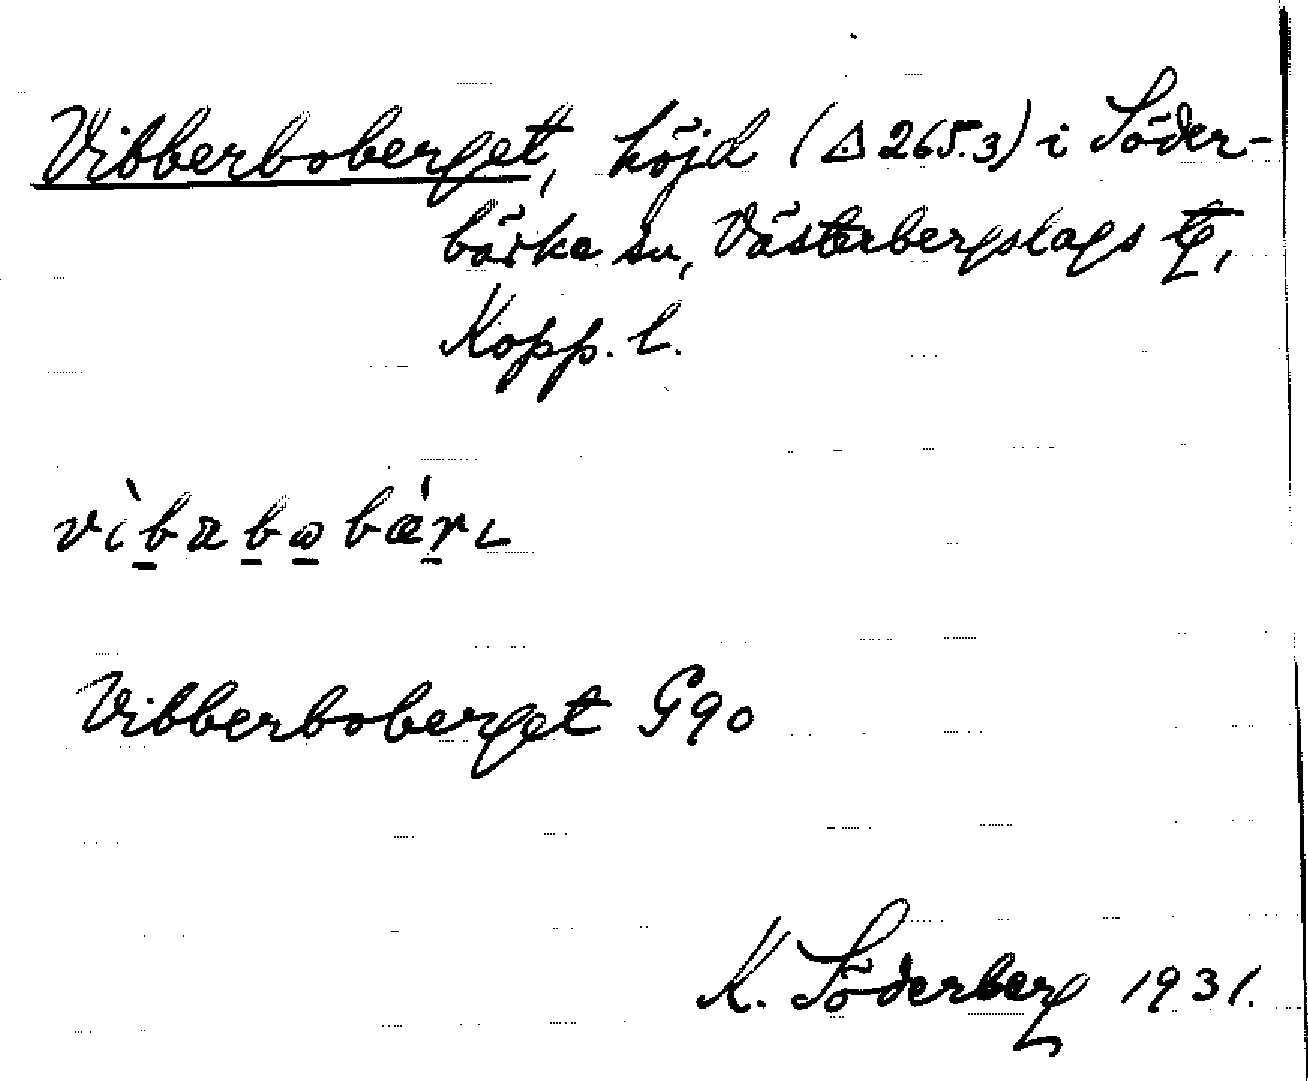 Vibberboberget, höjd (△ 265.3) i Söder-
bärke sn, Västerbergslags tg,
Kopp. l.
Vibberboberget G90
K. Söderberg 1931.